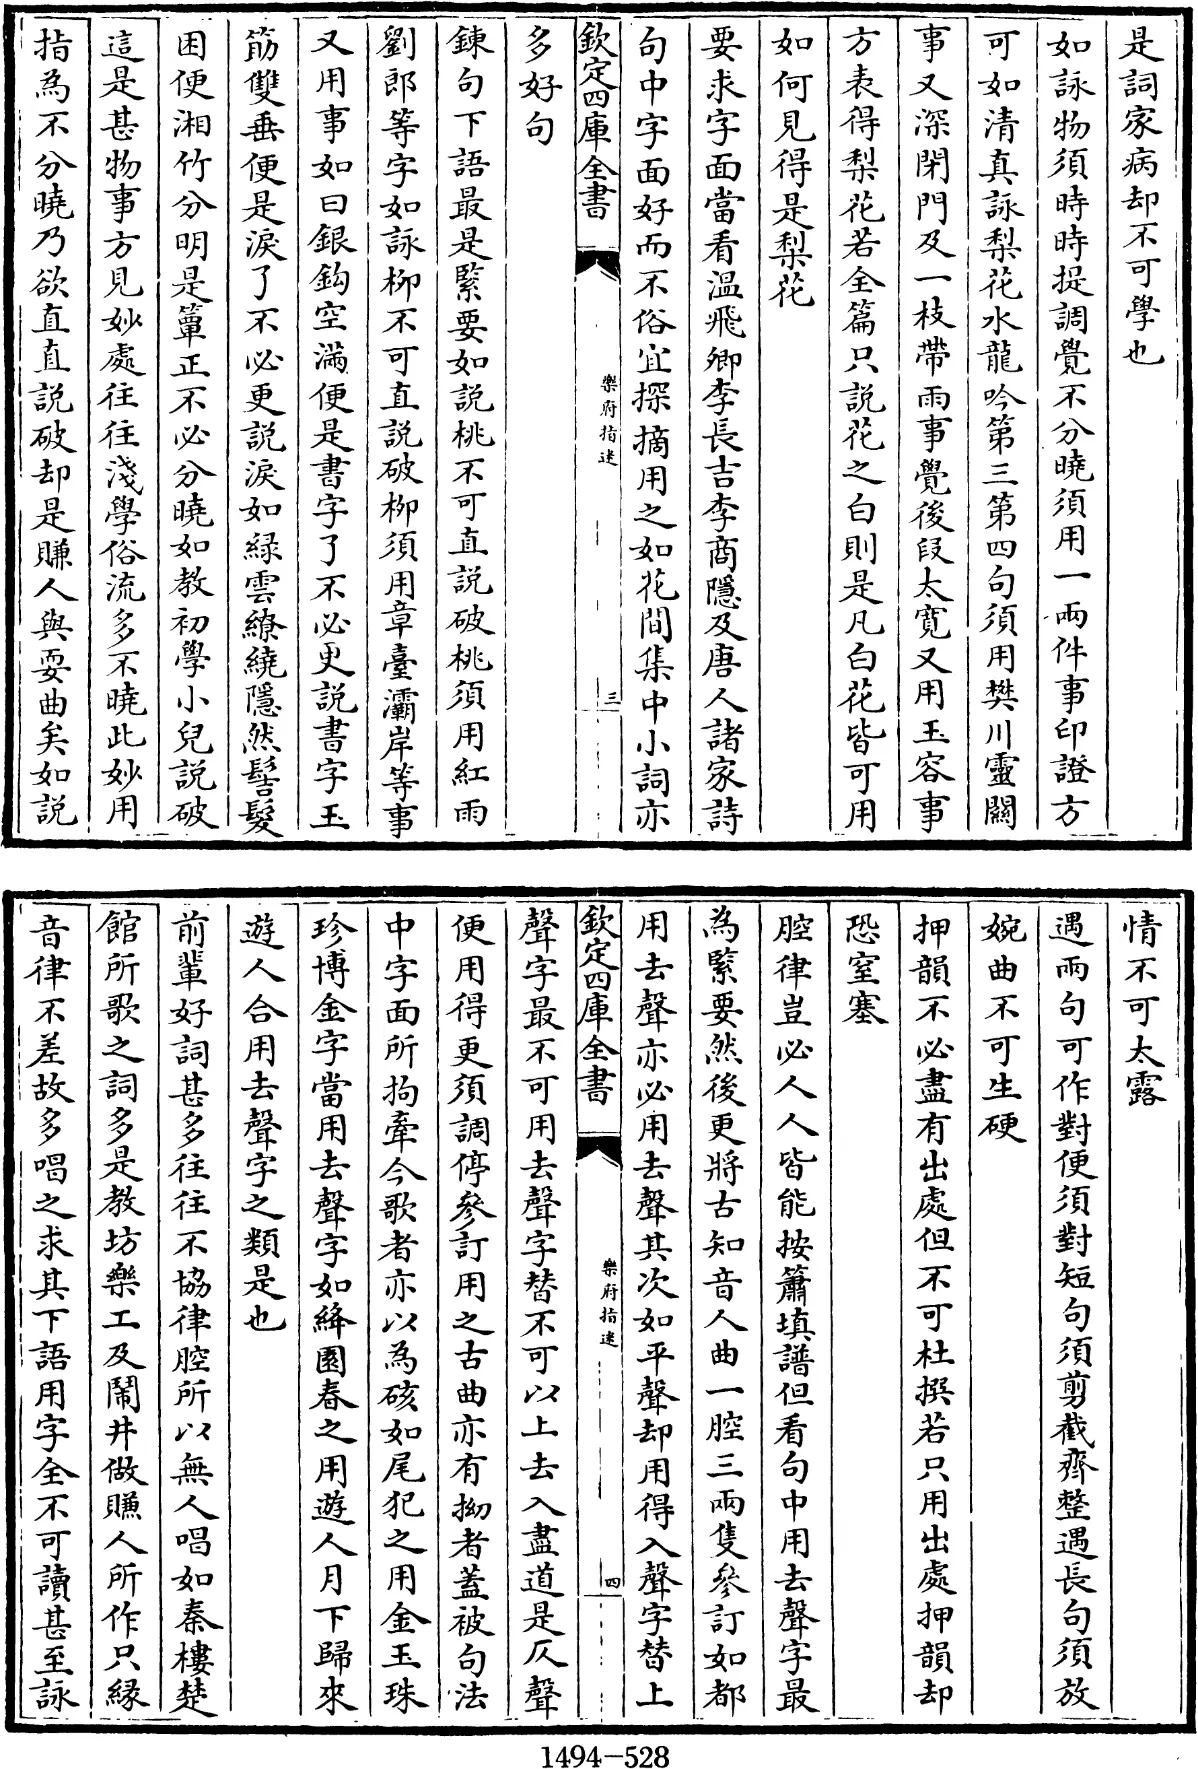 是詞家病却不可學也
如詠物須時時提調覺不分曉須用一兩件事印證方
可如清真詠梨花水龍吟第三第四句須用樊川靈關
事又深閉門及一枝帶雨事覺後段太寛又用玉容事
方表得梨花若全篇只說花之白則是凡白花皆可用
如何見得是梨花
要求字面當看溫飛卿李長吉李商隱及唐人諸家詩
句中字面好而不俗宜探摘用之如花間集中小詞亦
欽定四庫全書
樂府指迷
三
多好句
鍊句下語最是緊要如説桃不可直説破桃須用紅雨
劉郎等字如詠柳不可直説破柳須用章臺灞岸等事
又用事如曰銀鈎空滿便是書字了不必更説書字玉
筋雙垂便是淚了不必更説淚如緑雲繚繞隱然髻髮
困便湘竹分明是簟正不必分曉如教初學小兒説破
這是甚物事方見妙處往往淺學俗流多不曉此妙用
指為不分曉乃欲直直説破却是賺人與耍曲矣如説
情不可太露
遇兩句可作對便須對短句須剪截齊整遇長句須放
婉曲不可生硬
押韻不必盡有出處但不可杜撰若只用出處押韻却
恐窒塞
腔律豈必人人皆能按簫填譜但看句中用去聲字最
為緊要然後更將古知音人曲一腔三兩隻參訂如都
用去聲亦必用去聲其次如平聲却用得入聲字替上
欽定四庫全書
樂府指迷
四
聲字最不可用去聲字替不可以上去入盡道是仄聲
便用得更須調停參訂用之古曲亦有拗者蓋被句法
中字面所拘牽今歌者亦以為硋如尾犯之用金玉珠
珍博金字當用去聲字如絳園春之用遊人月下歸來
遊人合用去聲字之類是也
前輩好詞甚多往往不協律腔所以無人唱如秦樓楚
館所歌之詞多是教坊樂工及鬧井做賺人所作只緣
音律不差故多唱之求其下語用字全不可讀甚至詠
1494-528